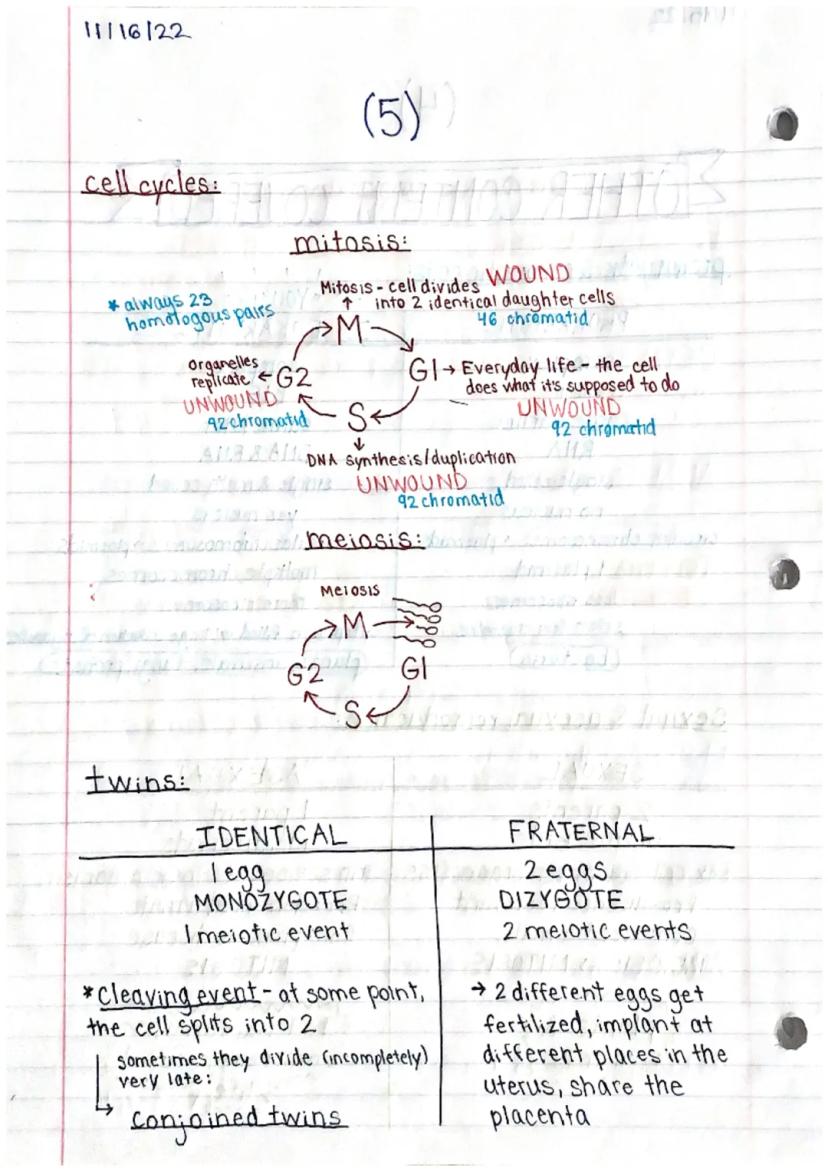 11/16/22
(5)
cell cycles:
mitosis:
Mitosis - cell divides WOUND
into 2 identical daughter cells
46 chromatid
* always 23
homologous pairs
M
organelles
replicate ← G2
UNWOUND
92 chromatid
G1 → Everyday life - the cell
does what it's supposed to do
UNWOUND
92 chromatid
S
DNA synthesis/duplication
UNWOUND
92 chromatid
meiosis:
Meiosis
M
G2 G1
S
twins:
IDENTICAL FRATERNAL
1 egg 2 eggs
MONOZYGOTE DIZYGOTE
1 meiotic event 2 meiotic events
* Cleaving event - at some point,
the cell splits into 2
sometimes they divide (incompletely)
very late:
conjoined twins
→ 2 different eggs get
fertilized, implant at
different places in the
uterus, share the
placenta